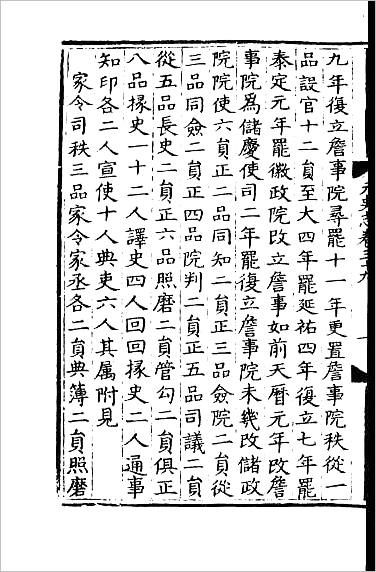 九年復立詹事院尋罷十一年更置詹事院秩從一
品設官十二員至大四年罷延祐四年復立七年罷
泰定元年罷徽政院改立詹事如前天曆元年改詹
事院為儲慶使司二年罷復立詹事院未幾改儲政
院院使六員正二品同知二員正三品僉院二員從
三品同僉二員正四品院判二員正五品司議二員
從五品長史二員正六品照磨二員管勾二員俱正
八品掾史一十二人譯史四人回回掾史二人通事
知印各二人宣使十人典吏六人其属附見
家令司秩三品家令家丞各二員典簿二員照磨